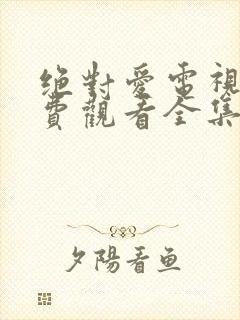 絕對愛電視
費觀看全集
夕陽看魚